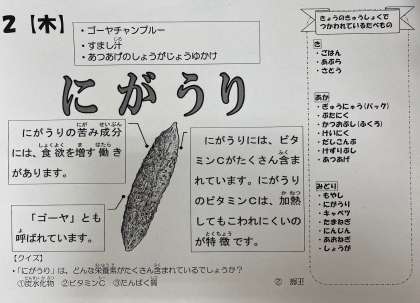 2【木】
・ゴーヤチャンプルー
・すまし汁
・あつあげのしょうがじょうゆかけ
にがうり
にがうりの苦み成分
には、食欲を増す働き
があります。
「ゴーヤ」とも
呼ばれています。
にがうりには、ビタ
ミンCがたくさん含ま
れています。にがうり
のビタミンCは、加熱
してもこわれにくいの
が特徴です。
【クイズ】
・「にがうり」は、どんな栄養素がたくさん含まれているでしょうか？
①炭水化物 ②ビタミンC ③たんぱく質
きょうのきゅうしょくで
つかわれているたべもの
き
・ごはん
・あぶら
・さとう
あか
・ぎゅうにゅう(パック)
・ぶたにく
・かつおぶし(ふくろ)
・けいにく
・だしこんぶ
・けずりぶし
・あつあげ
みどり
・もやし
・にがうり
・キャベツ
・たまねぎ
・にんじん
・あおねぎ
・しょうが